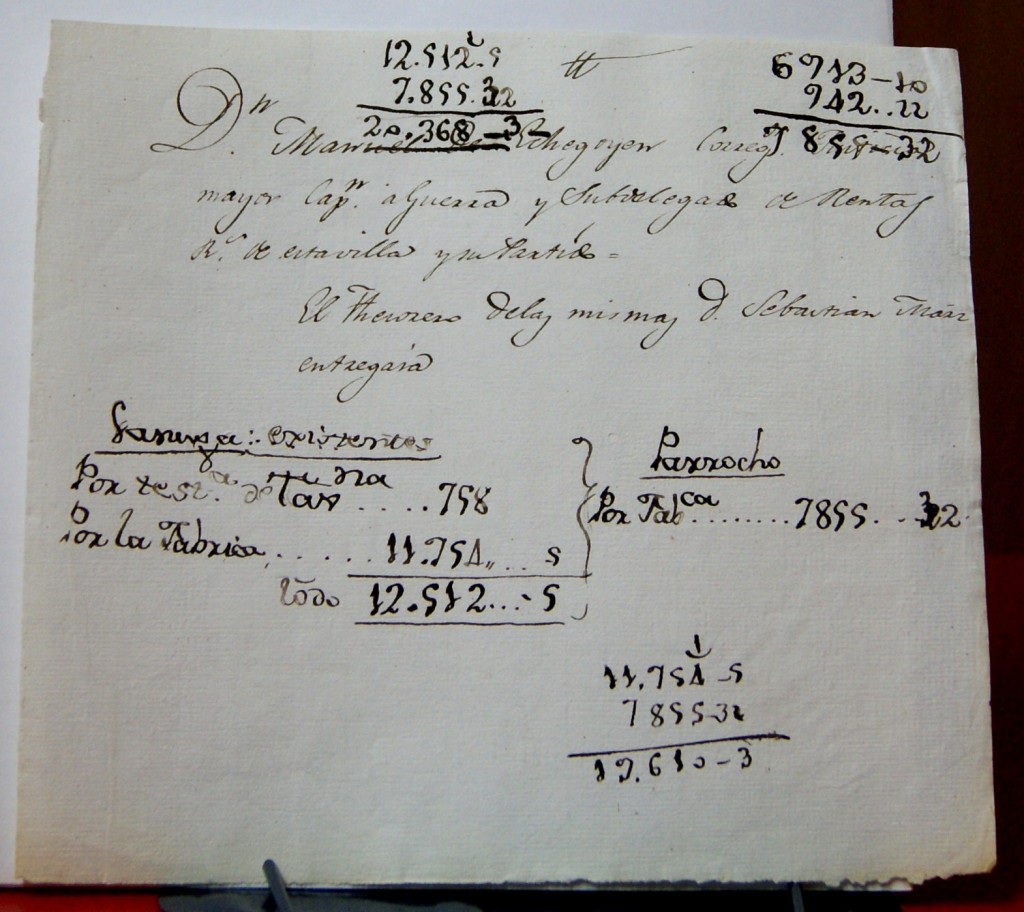 12.512.5
7.855.32
20.368-3-
tt
6913-10
942..22
7855-32
Dn. Manuel de Echegoyen Correg.
mayor Capn. a Guerra y Subdelegado de Rentas
Rs. de esta villa y su Partido =
El Thesorero de las mismas D. Sebastian
entregara
existentes
Por ..... 758
Por la Fabrica, ...... 11.754,, ... 5
todo 12.512...-5
Parrocho
Por Fabca ........ 7855...32
1
11,754-5
7855-32
19.610-3